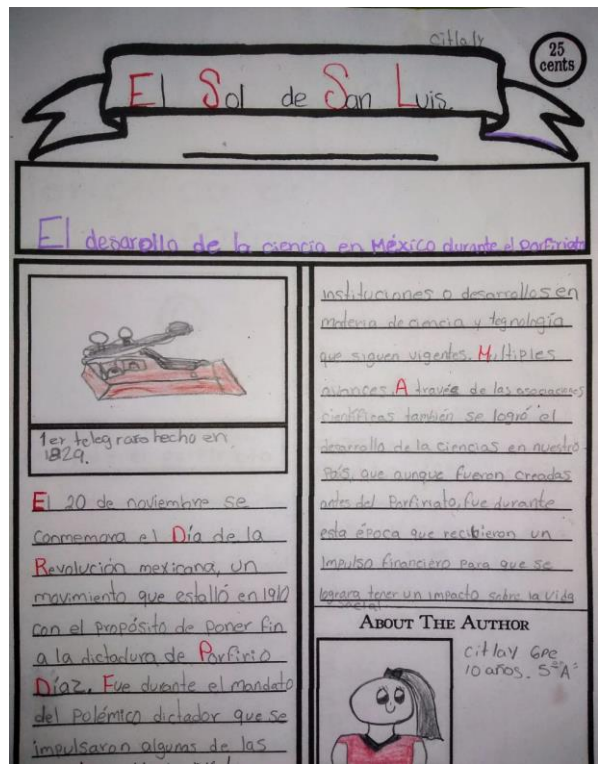 Citlaly
25
cents
El Sol de San Luis.
El desarollo de la ciencia en México durante el Porfiriato
1er telegrafo hecho en
1829.
El 20 de noviembre se
conmemora el Día de la
Revolución mexicana, un
movimiento que estalló en 1910
con el propósito de poner fin
a la dictadura de Porfirio
Díaz. Fue durante el mandato
del polémico dictador que se
impulsaron algunas de las
instituciones o desarrollos en
materia de ciencia y tegnología
que siguen vigentes. Múltiples
avances. A través de las asociaciones
científicas también se logró el
desarrollo de la ciencias en nuestro
País, que aunque fueron creadas
antes del Porfiriato, fue durante
esta época que recibieron un
impulso financiero para que se
lograra tener un impacto sobre la vida
social
ABOUT THE AUTHOR
Citlaly Gpe
10 años. 5° "A"